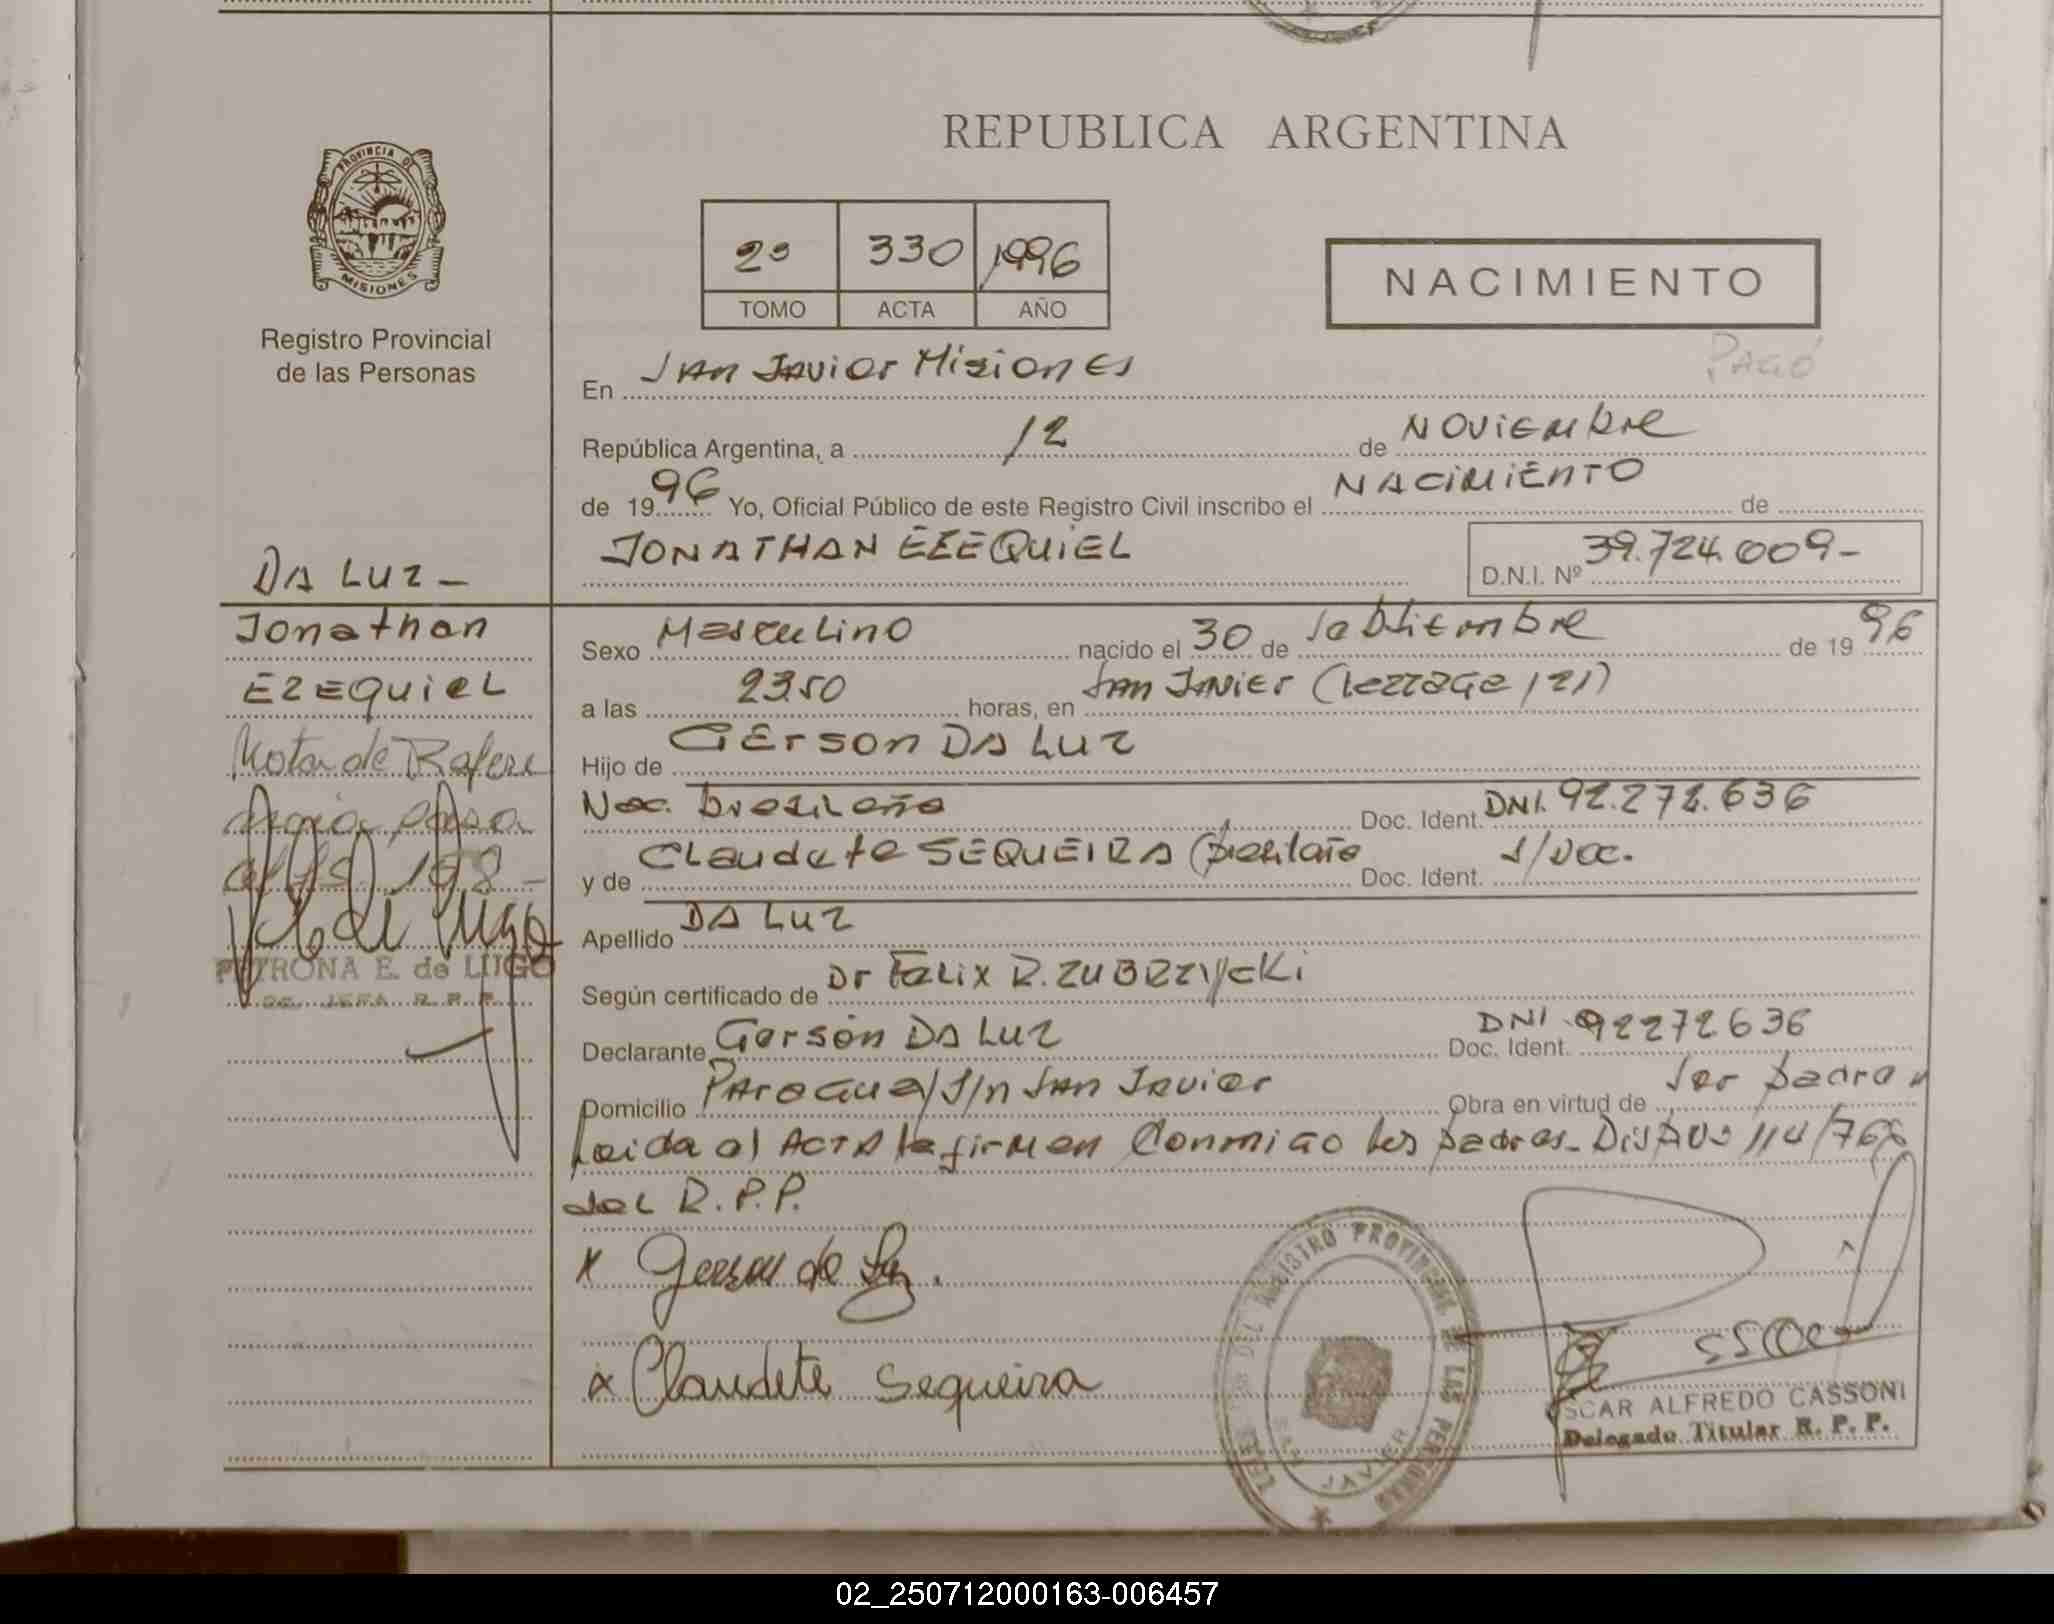 REPUBLICA ARGENTINA
PROVINCIA DE
MISIONES
Registro Provincial
de las Personas
2º 330 1996
TOMO ACTA AÑO
NACIMIENTO
PAGÓ
En San Javier Misiones
República Argentina, a 12 de Noviembre
de 1996 Yo, Oficial Público de este Registro Civil inscribo el NACIMIENTO de
JONATHAN EZEQUIEL
D.N.I. Nº 39.724.009-
DA LUZ -
Jonathan
EZEQUIEL
Nota de Refere
al Fs. 198-
PETRONA E. de LUGO
JEFA R. P. P.
Sexo Masculino nacido el 30 de Septiembre de 1996
a las 23.50 horas, en San Javier (Lezzage 121)
Hijo de Gerson DA LUZ
Nac. brasileño Doc. Ident. DNI. 92.272.636
y de Claudete SEQUEIRA (brasileña Doc. Ident. S/Doc.
Apellido DA LUZ
Según certificado de Dr Felix R. ZUBRZYCKi
Declarante Gerson DA LUZ Doc. Ident. DNI 92272636
Domicilio Paraguay S/n San Javier Obra en virtud de ser padre
Leida el ACTA la firman Conmigo los padres- Dispos 114/76
del R.P.P.
x Gerson da Luz.
x Claudete Sequeira
REGISTRO PROVINCIAL DE LAS PERSONAS
SAN JAVIER
OSCAR ALFREDO CASSONI
Delegado Titular R. P. P.
02_250712000163-006457